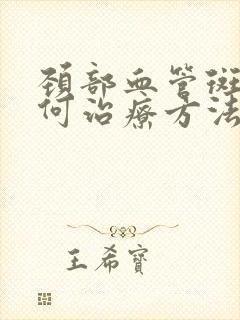 頸部血管斑
何治療方法
王希寶